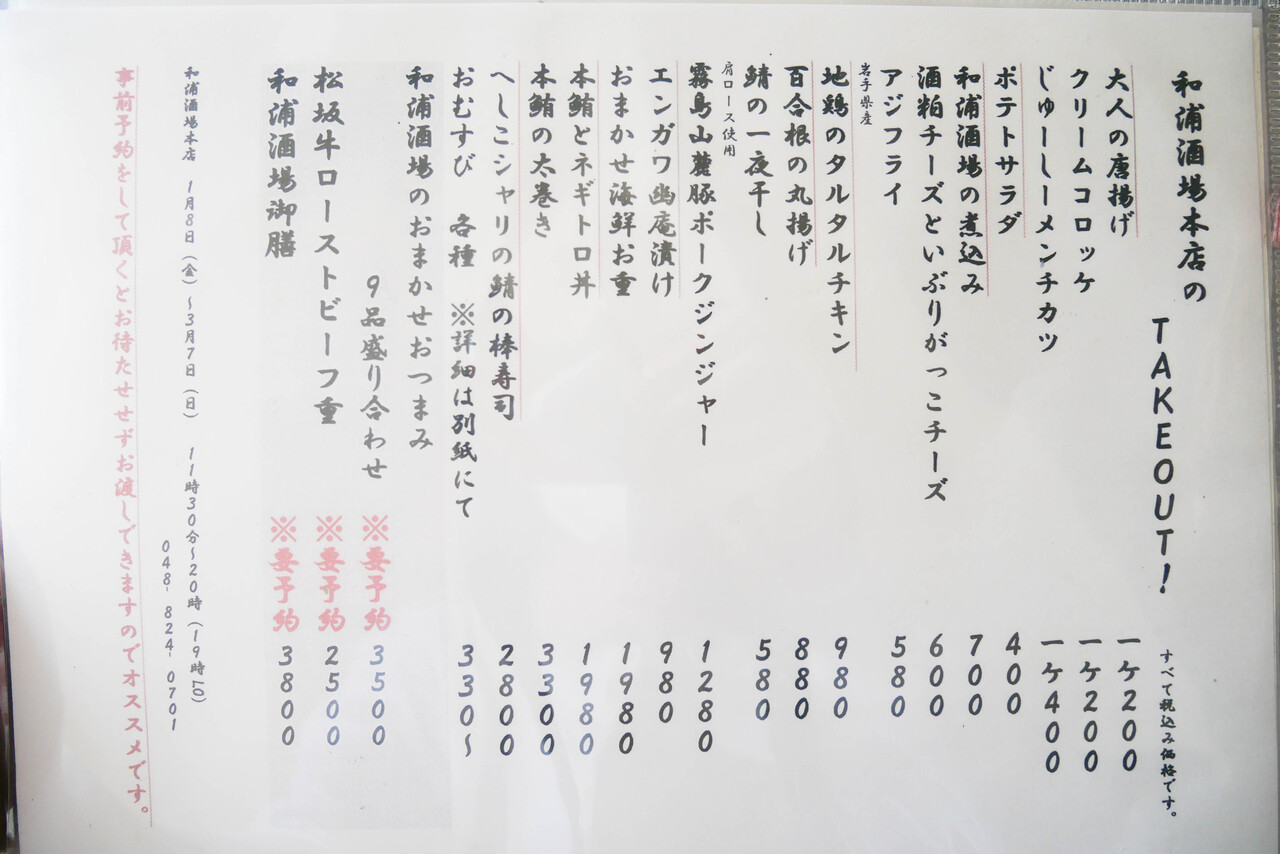 和浦酒場本店の TAKEOUT!
すべて税込み価格です。
大人の唐揚げ 一ケ200
クリームコロッケ 一ケ200
じゅーしーメンチカツ 一ケ400
ポテトサラダ 400
和浦酒場の煮込み 700
酒粕チーズといぶりがっこチーズ 600
アジフライ 580
岩手県産
地鶏のタルタルチキン 980
百合根の丸揚げ 880
鯖の一夜干し 580
肩ロース使用
霧島山麓豚ポークジンジャー 1280
エンガワ幽庵漬け 980
おまかせ海鮮お重 1980
本鮪とネギトロ丼 1980
本鮪の太巻き 3300
へしこシャリの鯖の棒寿司 2800
おむすび 各種 ※詳細は別紙にて 330〜
和浦酒場のおまかせおつまみ
9品盛り合わせ ※要予約 3500
松坂牛ローストビーフ重 ※要予約 2500
和浦酒場御膳 ※要予約 3800
和浦酒場本店 1月8日(金)〜3月7日(日) 11時30分〜20時(19時LO)
048-824-0701
事前予約をして頂くとお待たせせずお渡しできますのでオススメです。